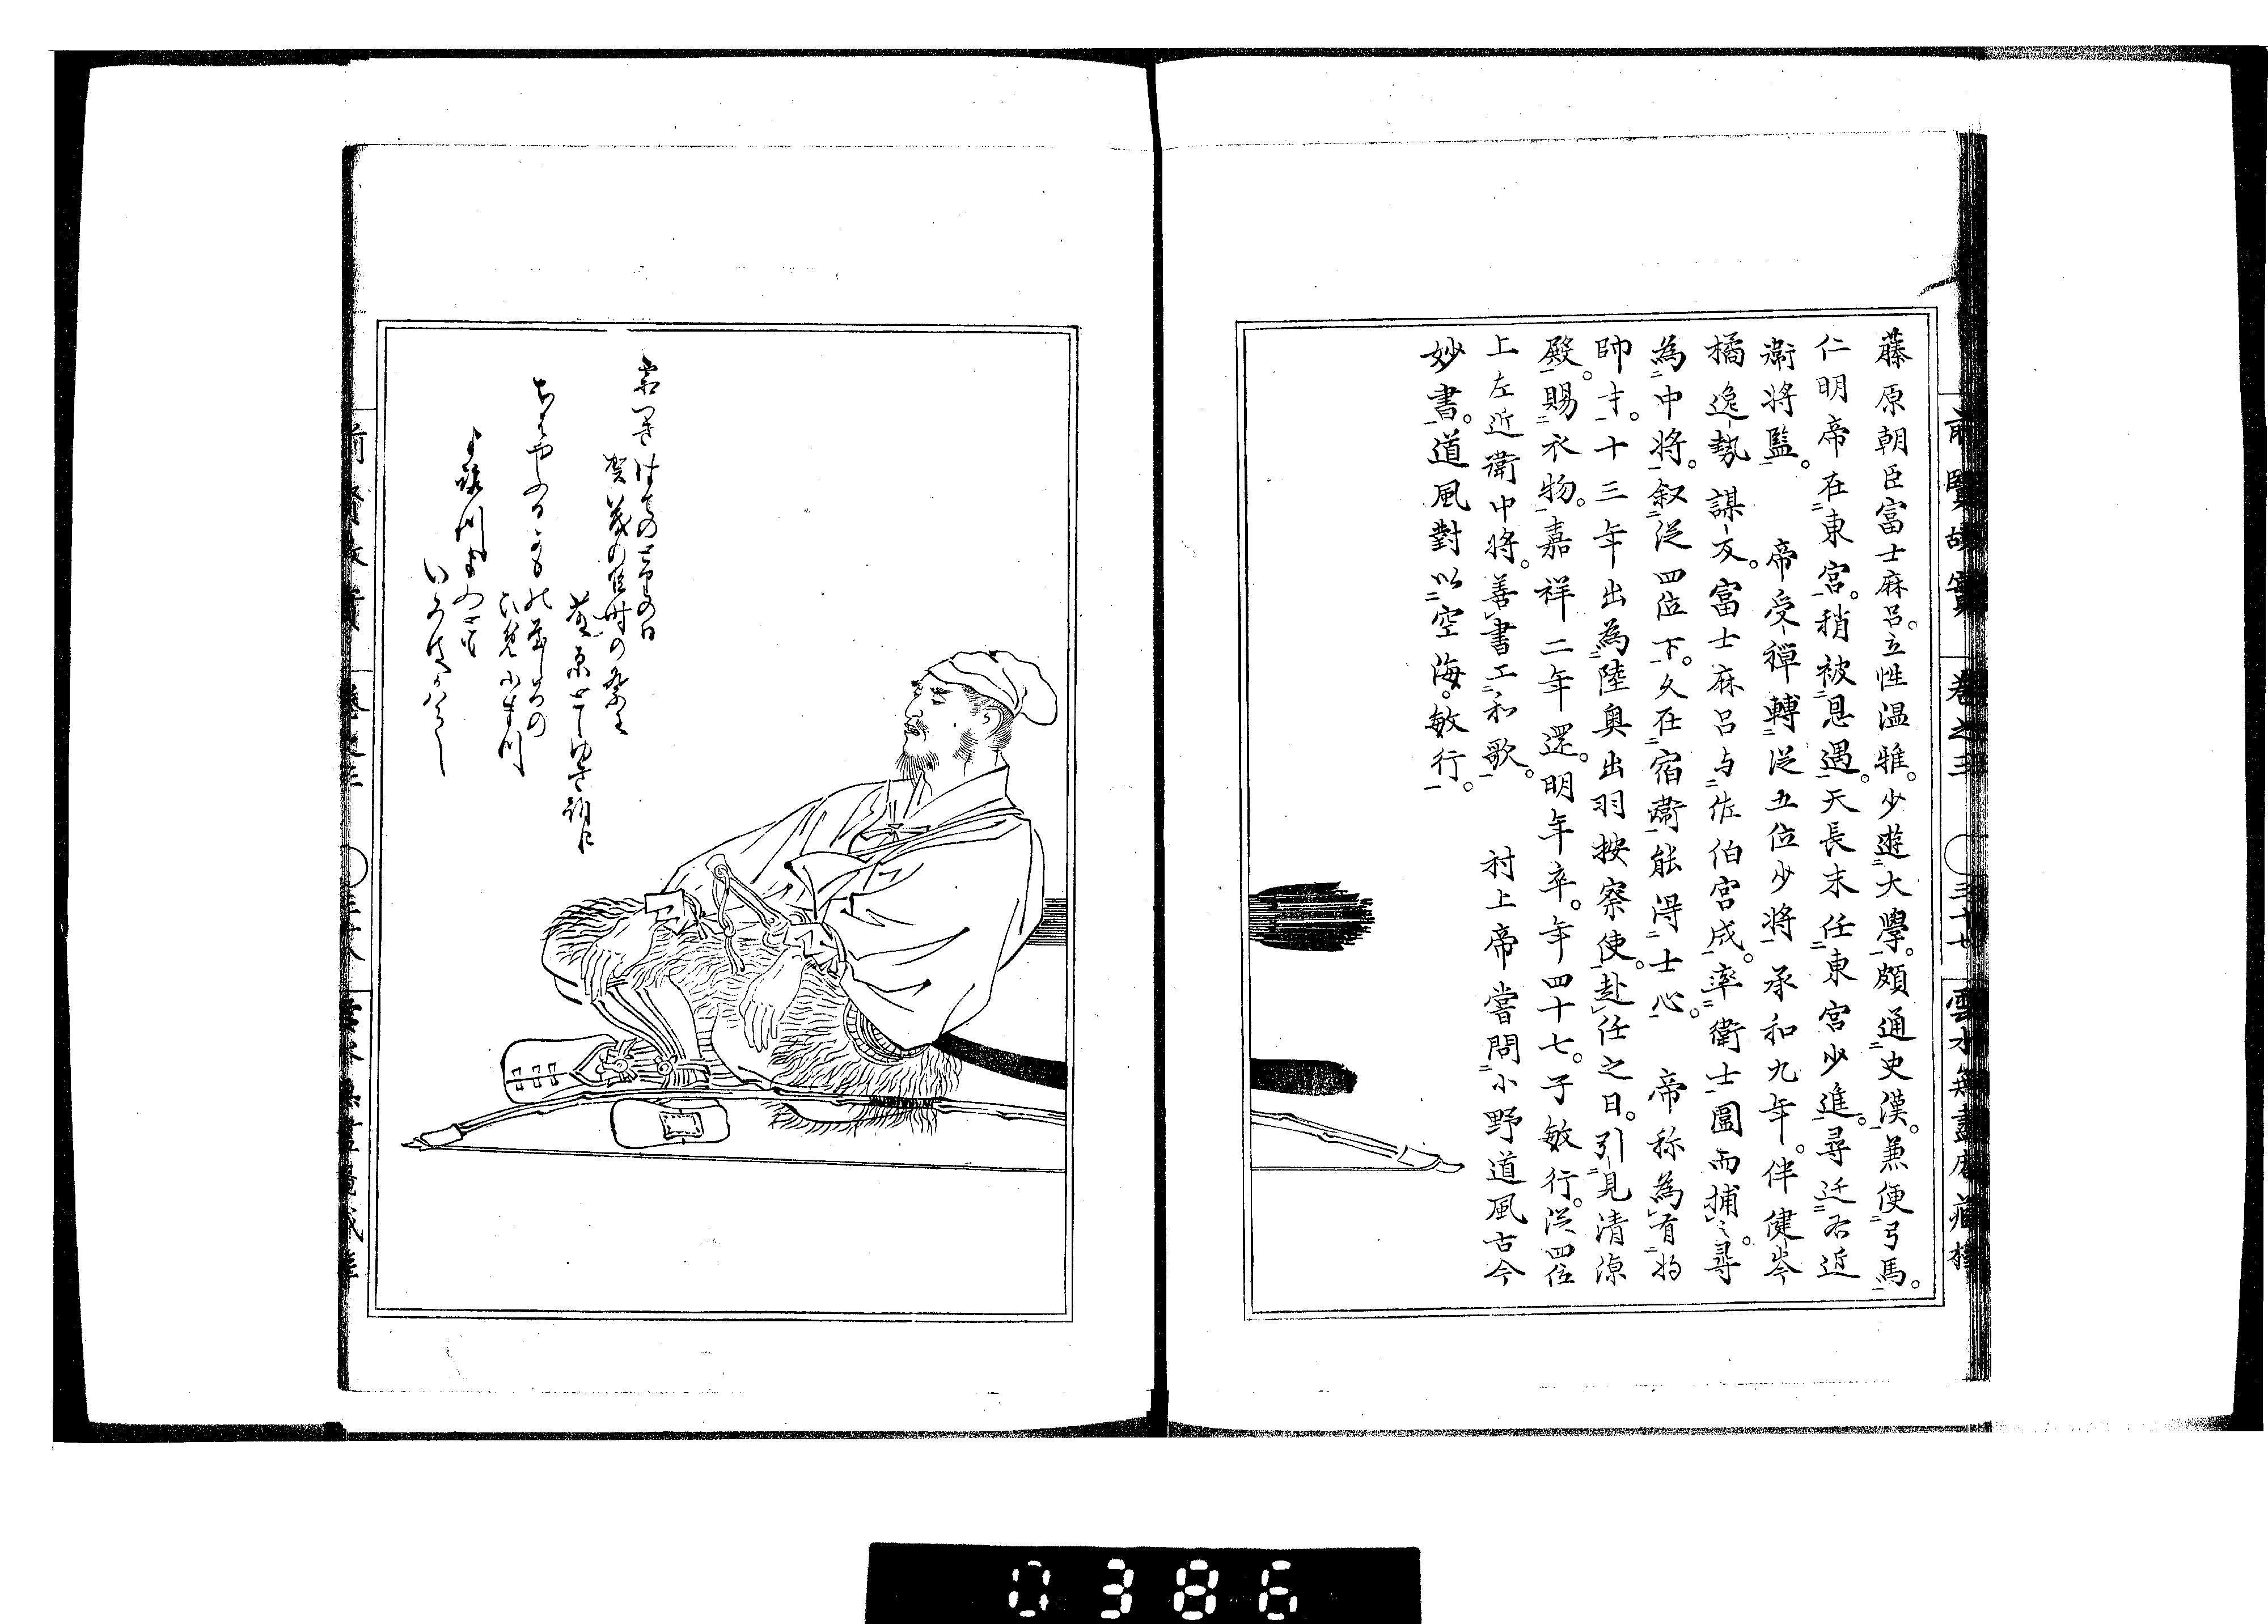 前賢故實 巻之三 三十七 雲水無盡庵藏
藤原朝臣富士麻呂。立性温雅。少遊大學。頗通史漢。兼便弓馬。
仁明帝在東宮。稍被恩遇。天長末任東宮少進。尋迁右近
衛将監。 帝受禪轉従五位少将 承和九年。伴健岑
橘逸勢謀反。富士麻呂与佐伯宮成。率衛士圍而捕之。尋
為中将。叙従四位下。久在宿衛能得士心。 帝称為有将
帥才。十三年出為陸奥出羽按察使。赴任之日。引見清凉
殿。賜衣物。嘉祥二年還。明年卒。年四十七。子敏行。従四位
上左近衛中将。善書工和歌。 村上帝嘗問小野道風古今
妙書。道風對以空海。敏行。
賀茂の臨時の祭
藤原としゆき朝臣
ちはやふる
いろは
前賢故實 巻之三
0386